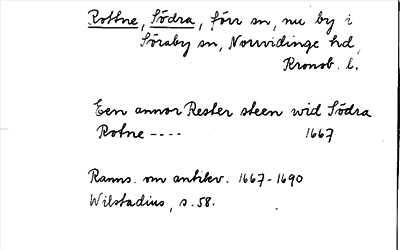 Rottne, Södra, förr sn, nu by i
Söraby sn, Norrvidinge hd,
Kronob. l.
Een annor Rester steen wid Södra
Rotne ---- 1667
Ranns. om antikv. 1667-1690
Wilstadius, s. 58.